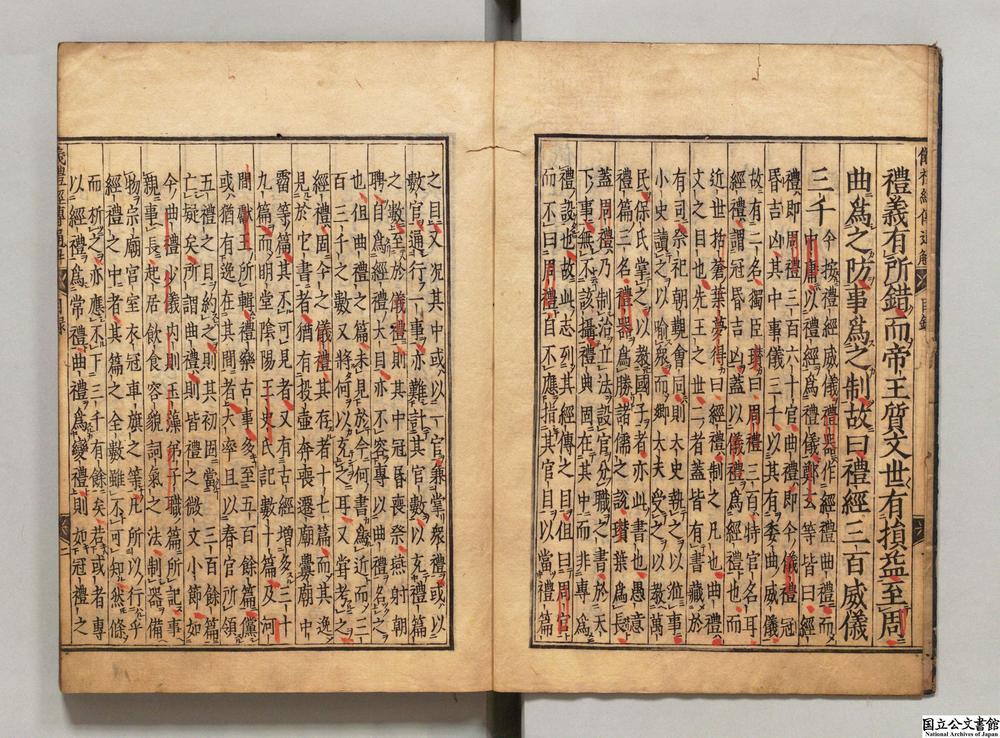 禮義有所錯而帝王質文世有損益至周
曲爲之防事爲之制故曰禮經三百威儀
三千
今按禮經威儀禮器作經禮曲禮而
中庸以禮經爲禮儀鄭玄等皆曰經
禮即周禮三百六十官曲禮即今儀禮冠
昏吉凶其中事儀三千以其有委曲威儀
故有二名獨臣瓚曰周禮三百特官名耳
經禮謂冠昏吉凶蓋以儀禮爲經禮也而
近世括蒼葉夢得曰經禮制之凡也曲禮
文之目也先王之世二者蓋皆有書藏於
有司祭祀朝覲會同則大史執之以涖事
小史讀之以喻衆而卿大夫受之以教萬
民保氏掌之以教國子者亦此書也愚意
禮篇三名禮器爲勝諸儒之說瓚葉爲長
蓋周禮乃制治立法設官分職之書於天
下事無不該攝禮典固在其中而非專爲
禮設也故此志列其經傳之目但曰周官
而不曰周禮自不應指其官目以當禮篇
之目又況其中或以一官兼掌衆禮或以
數官通行一事亦難計其官數以充禮篇
之數至於儀禮則其中冠昏喪祭燕射朝
聘自爲經禮大目亦不容專以曲禮名之
也但曲禮之篇未見於今何書爲近而三
百三千之數又將何以充之耳又嘗考之
經禮固今之儀禮其存者十七篇而其逸
見於它書者猶有投壺奔喪遷廟釁廟中
霤等篇其不可見者又有古經增多三十
九篇而明堂陰陽王史氏記數十篇及河
間獻王所輯禮樂古事多至五百餘篇儻
或猶有逸在其間者大率且以春官所領
五禮之目約之則其初固當有三百餘篇
亡疑矣所謂曲禮則皆禮之微文小節如
今曲禮少儀內則玉藻弟子職篇所記事
親事長起居飲食容貌詞氣之法制器備
物宗廟宮室衣冠車旗之等凡所以行乎
經禮之中者其篇之全數雖不可知然條
而析之亦應不下三千有餘矣若或者專
以經禮爲常禮曲禮爲變禮則如冠禮之
儀禮經傳通解 目錄
国立公文書館
National Archives of Japan